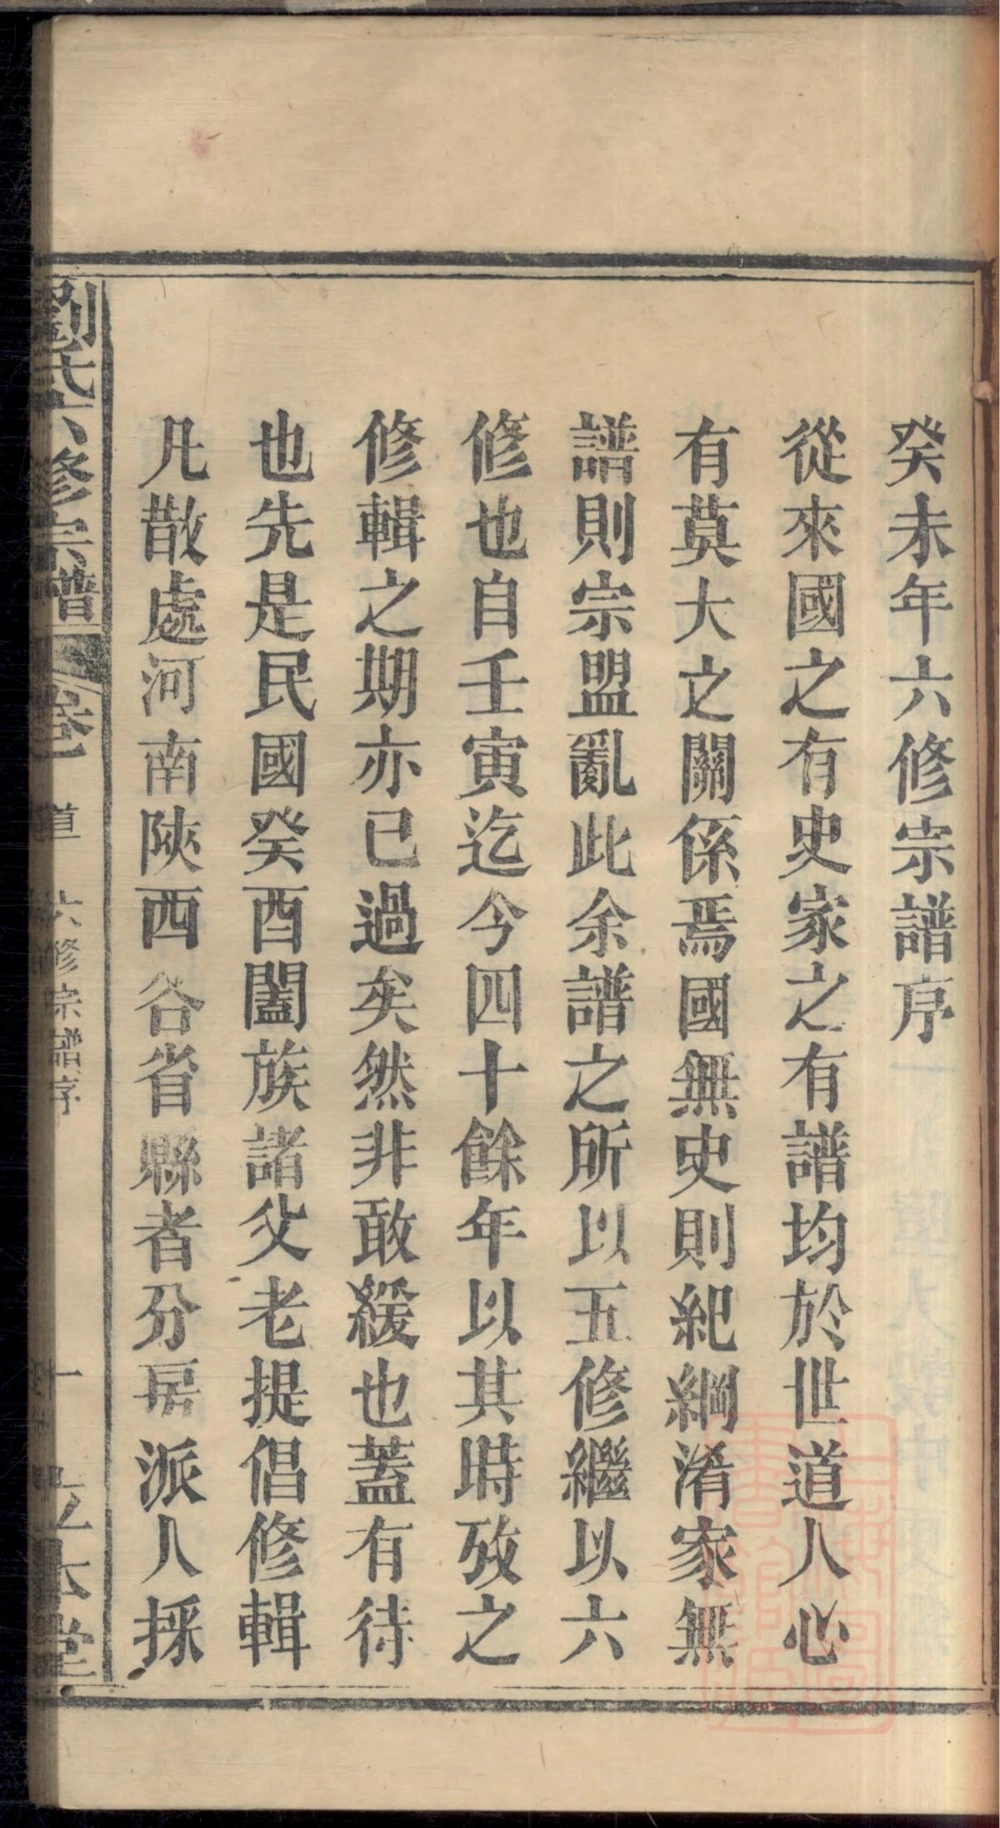 癸未年六修宗譜序
從來國之有史家之有譜均於世道人心
有莫大之關係焉國無史則紀綱淆家無
譜則宗盟亂此余譜之所以五修繼以六
修也自壬寅迄今四十餘年以其時攷之
修輯之期亦已過矣然非敢緩也蓋有待
也先是民國癸酉闔族諸父老提倡修輯
凡散處河南陝西各省縣者分房派人採
劉氏六修宗譜
卷一
首
六修宗譜序
一
立本堂